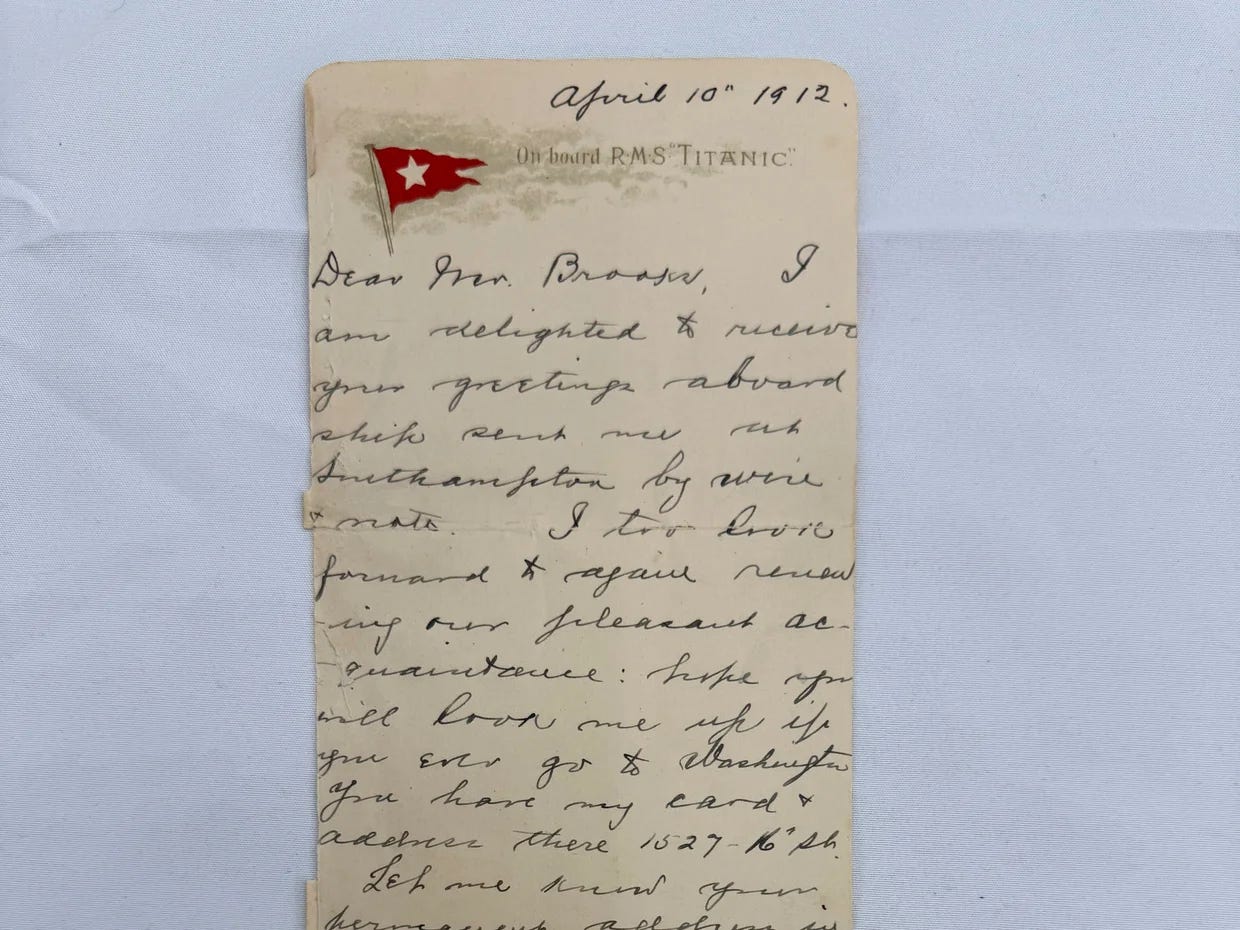 April 10" 1912.
On board R·M·S "TITANIC".
Dear Mr. Brooks, I
am delighted to receive
your greetings aboard
ship sent me at
Southampton by wire
& note. I too look
forward to again renew
-ing our pleasant ac-
-quaintance: hope you
will look me up if
you ever go to Washington
You have my card &
address there 1527-16" St.
Let me know your
permanent address in